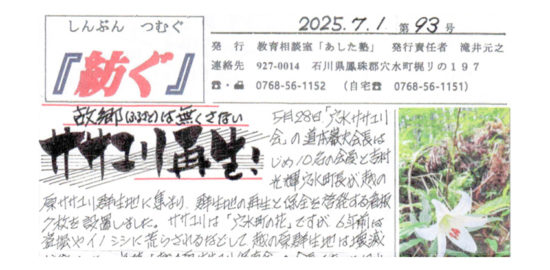 しんぶん つむぐ
『紡ぐ』
2025.7.1 第93号
発 行 教育相談室「あした塾」 発行責任者 滝井元之
連絡先 927-0014 石川県鳳珠郡穴水町梶リの197
☎・📠 0768-56-1152 (自宅☎ 0768-56-1151)
故郷(ふるさと)は無くさない
ササユリ再生!
5月28日「穴水ササユリ
会」の道本巌夫会長は
じめ10名の会員と吉村
光輝穴水町長が越の
原ササユリ群生地に集まり、群生地の再生と保全を啓発する看板
7枚を設置しました。ササユリは「穴水町の花」ですが、6年前は
盗掘やイノシシに荒らされるなどして越の原群生地は壊滅